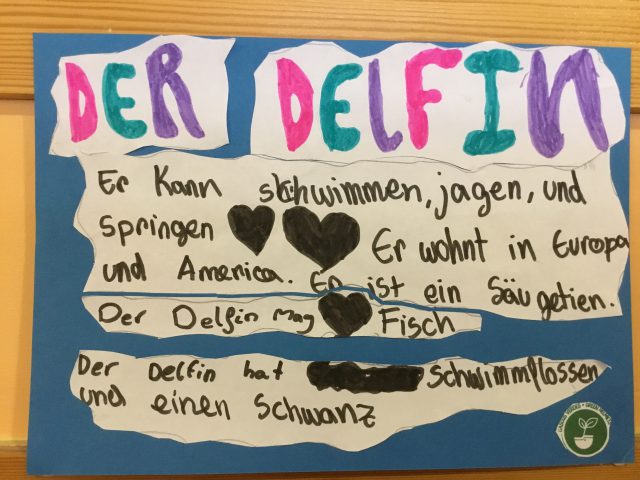 DER DELFIN
Er kann schwimmen, jagen, und
springen Er wohnt in Europa
und America. Er ist ein Säugetien.
Der Delfin mag Fisch
Der Delfin hat Schwimmflossen
und einen Schwanz